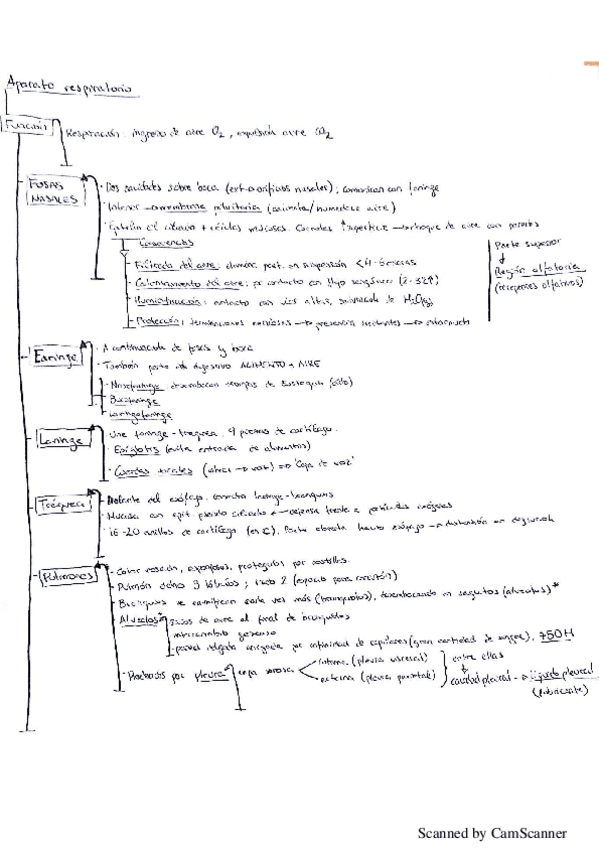 Aparato respiratorio
Función
Respiración: ingreso de aire O2, expulsión aire CO2
FOSAS NASALES
Dos cavidades sobre boca (ext→orificios nasales); comunican con laringe
Interior → membrana pituitaria (calienta/humedece aire)
Epitelio cilíndrico + células mucosas. Cornetes ↑superficie → choque de aire con paredes
Consecuencias
Filtrado del aire: elimina part. en suspensión
Calentamiento del aire: por contacto con flujo sanguíneo
Humidificación: contacto con
Protección: terminaciones nerviosas → presencia irritantes → estornudo
Parte superior
↓
Región olfatoria
(receptores olfativos)
Faringe
A continuación de fosas y boca
También parte de digestivo ALIMENTO + AIRE
Nasofaringe: desembocan trompas de Eustaquio (oído)
Bucofaringe
Laringofaringe
Laringe
Une faringe - tráquea. 9 piezas de cartílago.
Epiglotis (evita entrada de alimentos)
Cuerdas vocales → "Caja de voz"
Tráquea
Delante del esófago. Conecta laringe - bronquios
Mucosa con epit. ciliado → defensa frente a partículas exógenas
16-20 anillos de cartílago (en C). Parte abierta hacia esófago → distensión en
Pulmones
Color rosado, esponjosos, protegidos por costillas.
Pulmón dcho 3 lóbulos; izdo 2 (espacio para corazón)
Bronquios se ramifican cada vez más (bronquiolos), desembocando en saquitos (alveolos)*
Alveolos
sacos de aire al final de bronquiolos
intercambio gaseoso
pared delgada envuelta por infinidad de capilares (gran cantidad de sangre), 750M
Rodeados por pleura
capa serosa
interna (pleura visceral)
externa (pleura parietal)
entre ellas
↓
cavidad pleural → líquido pleural
(lubricante)
Scanned by CamScanner